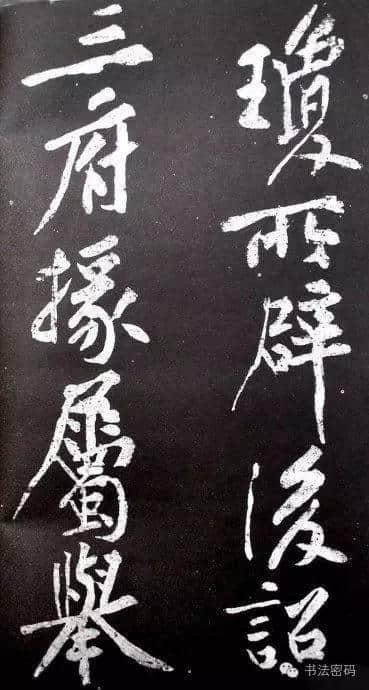 瓊所辟後詔
三府掾屬舉
书法密码